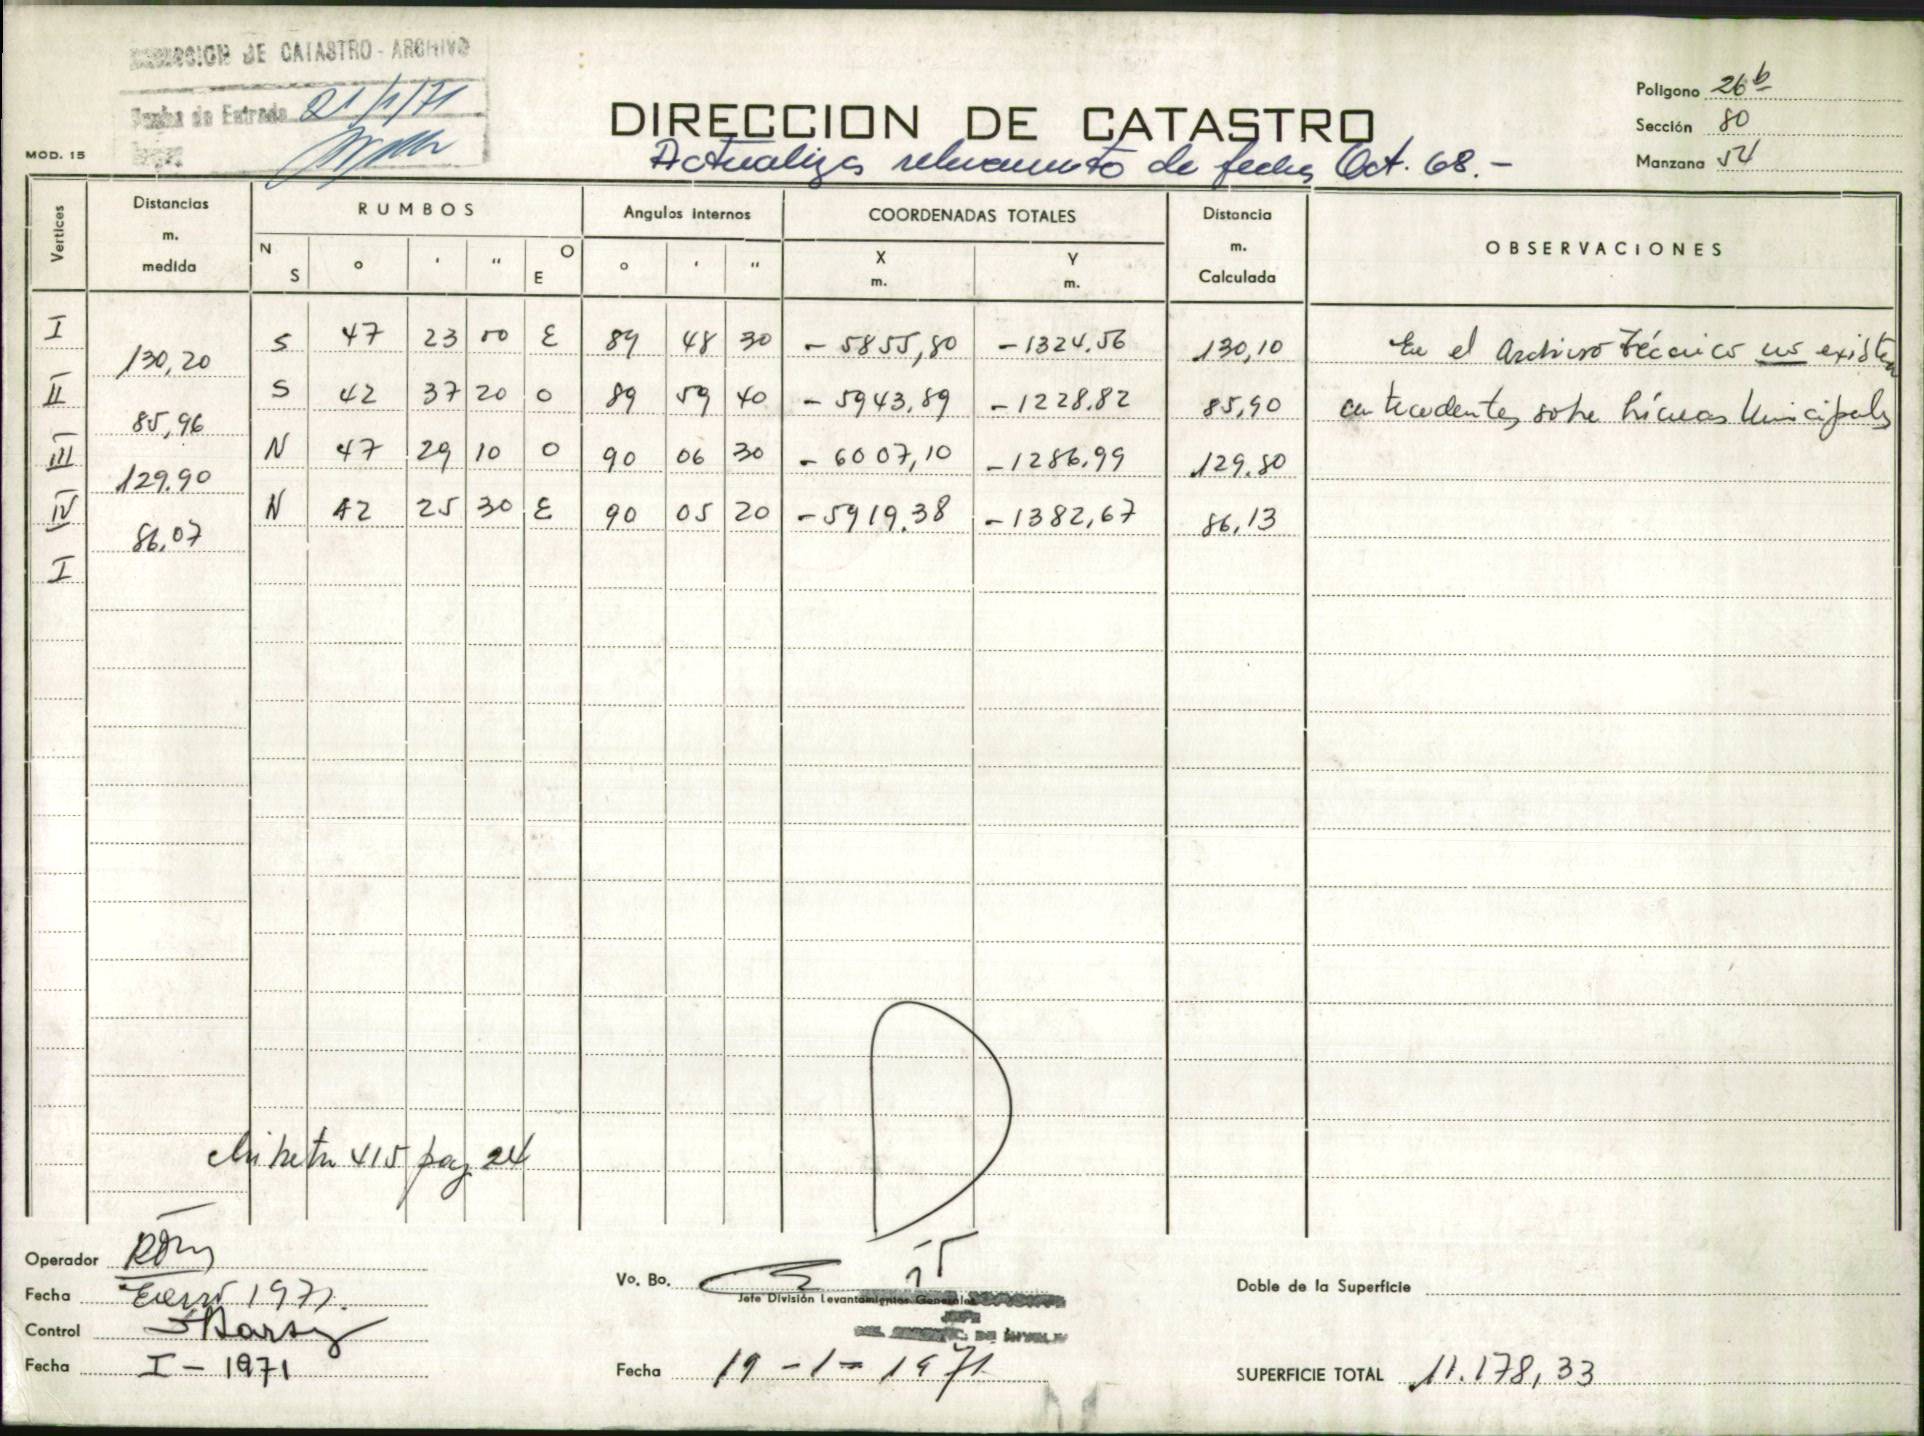 DIRECCION DE CATASTRO - ARCHIVO
Fecha de Entrada 21/1/71
MOD. 15
DIRECCION DE CATASTRO
Actualiza relevamiento de fecha Oct. 68.-
Poligono 26 b
Sección 80
Manzana 54
Vertices Distancias m. medida RUMBOS Angulos Internos COORDENADAS TOTALES Distancia m. Calculada OBSERVACIONES
N S ° ' " O E ° ' " X m. Y m.
I S 47 23 50 E 89 48 30 -5855,80 -1324.56 130,10 En el Archivo Técnico no existen
130,20
II S 42 37 20 O 89 59 40 -5943,89 -1228.82 85,90 antecedentes sobre Líneas Municipales
85,96
III N 47 29 10 O 90 06 30 -6007,10 -1286.99 129.80
129.90
IV N 42 25 30 E 90 05 20 -5919.38 -1382,67 86,13
86,07
I
Libreta 415 pag 24
Operador
Fecha Enero 1971.
Control
Fecha I-1971
Vo. Bo.
Jefe División Levantamientos Generales
JEFE
Fecha 19-1-1971
Doble de la Superficie
SUPERFICIE TOTAL 11.178,33